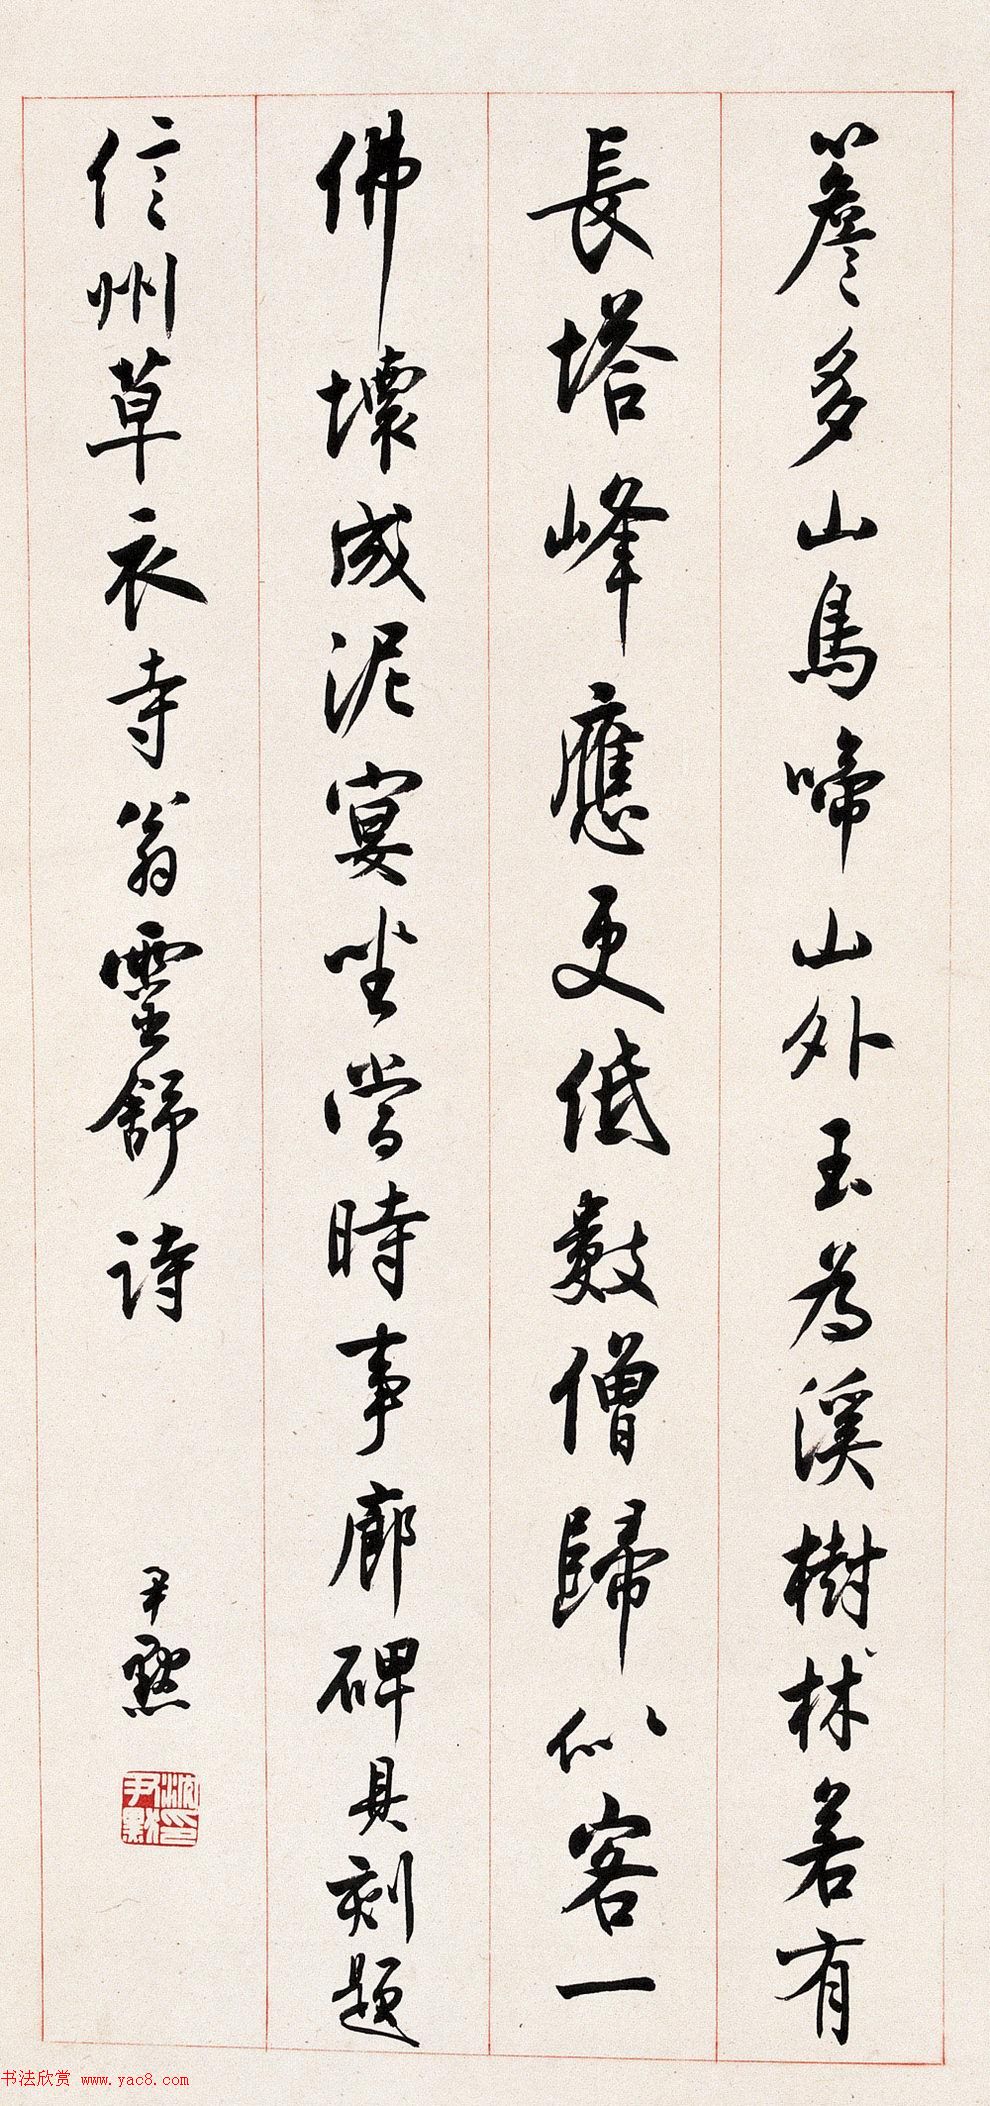 簷多山鳥啼山外玉為溪樹林若有
長塔峰應更低數僧歸似客一
佛壞成泥宴坐當時事廊碑具刻題
信州草衣寺翁靈舒詩
尹默
沈尹默印
书法欣赏 www.yac8.com